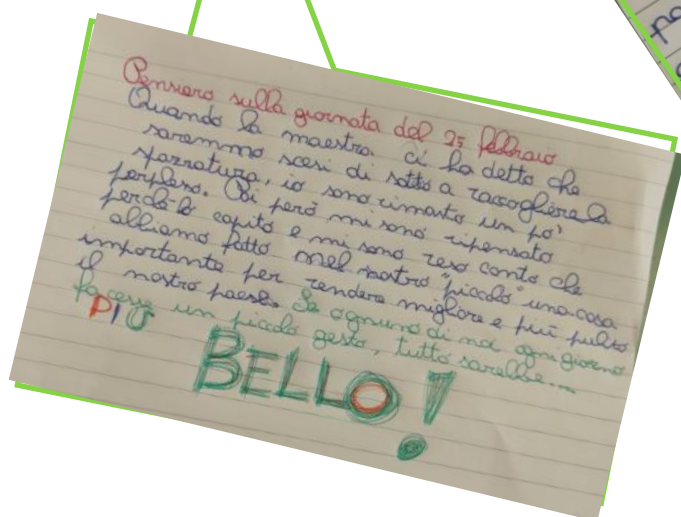 Pensiero sulla giornata del 25 febbraio
Quando la maestra ci ha detto che
saremmo scesi di sotto a raccogliere la
spazzatura, io sono rimasto un po'
perplesso. Poi però mi sono ripensato
perchè ho capito e mi sono reso conto che
abbiamo fatto nel nostro "piccolo" una cosa
importante per rendere migliore e più pulito
il nostro paese. Se ognuno di noi ogni giorno
facesse un piccolo gesto, tutto sarebbe...
PIÙ
BELLO!